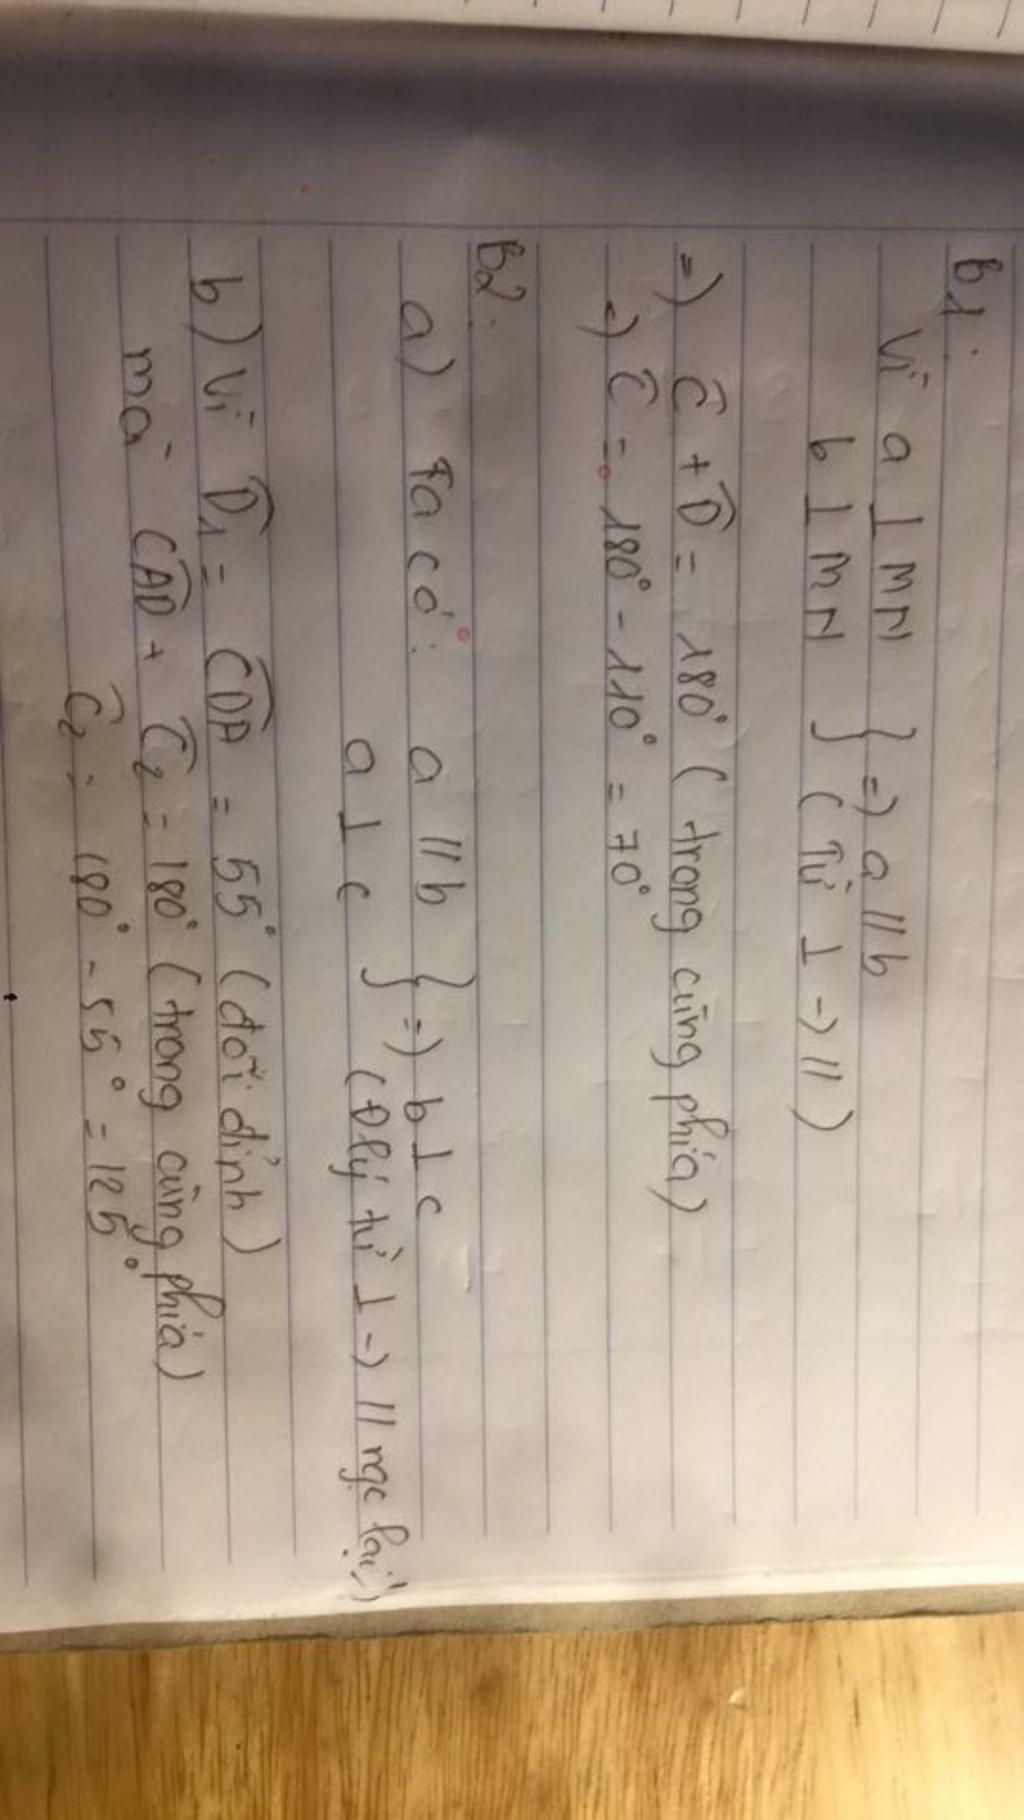 B1.
Vì a ⊥ MN } => a // b
b ⊥ MN } (Từ ⊥ -> //)
=) Ĉ + D̂ = 180° (trong cùng phía)
=) Ĉ = 180° - 110° = 70°
B2.
a) Ta có: a // b } =) b ⊥ c
a ⊥ c } (Đlý từ ⊥ -> // ngc lại)
b) Vì D̂₁ = CDA^ = 55° (đối đỉnh)
mà CAD^ + Ĉ₂ = 180° (trong cùng phía)
Ĉ₂ : 180° - 55° = 125°